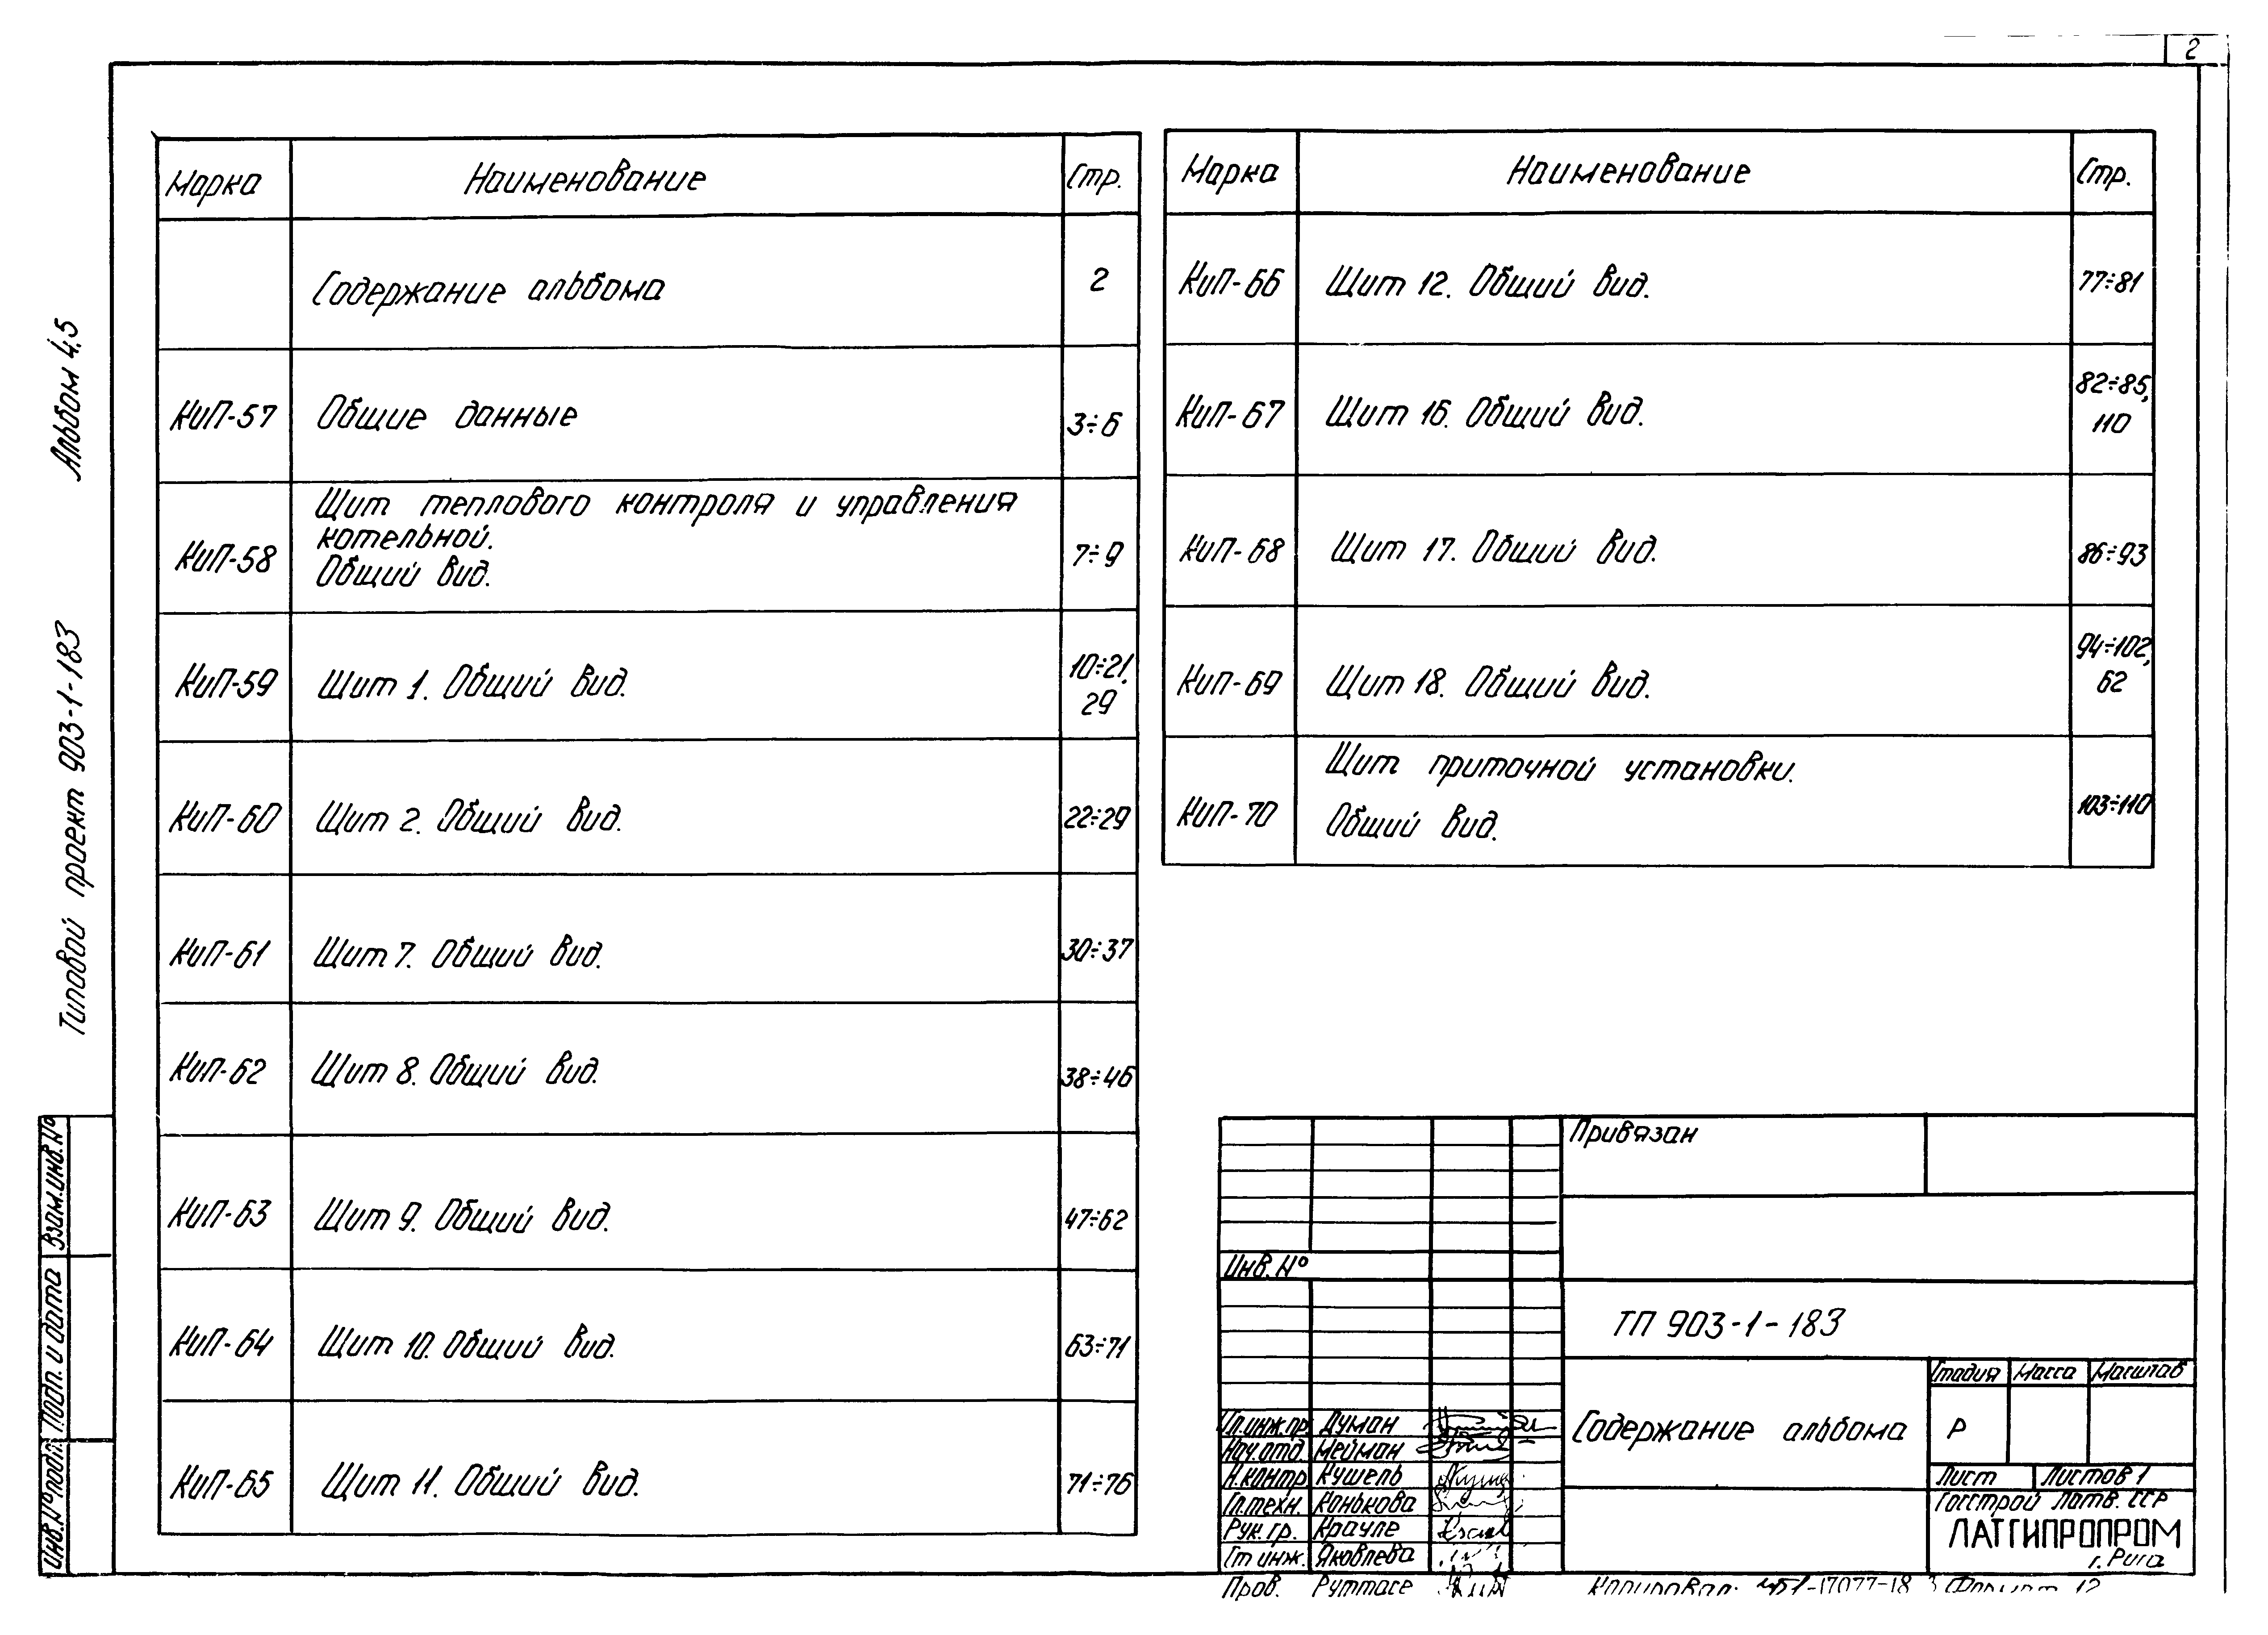 2
Альбом 4.5
Типовой проект 903-1-183
Взам.инв.№
Подп. и дата
Инв.№ подл.
Марка Наименование Стр.
Содержание альбома 2
КиП-57 Общие данные 3÷6
КиП-58 Щит теплового контроля и управления
котельной.
Общий вид. 7÷9
КиП-59 Щит 1. Общий вид. 10÷21,
29
КиП-60 Щит 2. Общий вид. 22÷29
КиП-61 Щит 7. Общий вид. 30÷37
КиП-62 Щит 8. Общий вид. 38÷46
КиП-63 Щит 9. Общий вид. 47÷62
КиП-64 Щит 10. Общий вид. 63÷71
КиП-65 Щит 11. Общий вид. 71÷76
Марка Наименование Стр.
КиП-66 Щит 12. Общий вид. 77÷81
КиП-67 Щит 16. Общий вид. 82÷85,
110
КиП-68 Щит 17. Общий вид. 86÷93
КиП-69 Щит 18. Общий вид. 94÷102,
62
КиП-70 Щит приточной установки.
Общий вид. 103÷110
Привязан
Инв. №
ТП 903-1-183
Содержание альбома
Стадия Масса Масштаб
Р
Лист Листов 1
Госстрой Латв. ССР
ЛАТГИПРОПРОМ
г. Рига
Гл.инж.пр. Думан
Нач.отд. Нейман
Н.контр. Кушель
Гл.техн. Конькова
Рук. гр. Крауле
Ст инж. Яковлева
Пров. Руттасе
Копировал: 17077-18 3 Формат 12